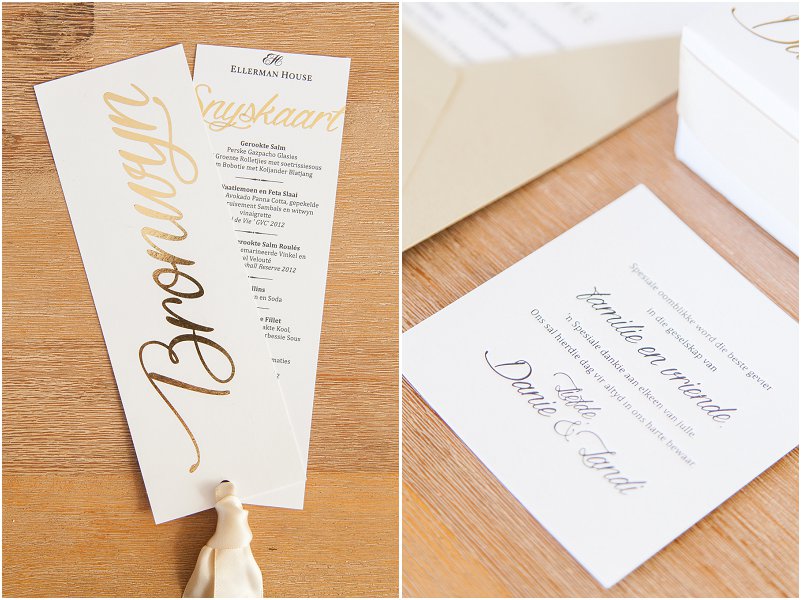 Bronwyn
EH
ELLERMAN HOUSE
Snyskaart
Gerookte Salm
Perske Gazpacho Glasies
Groente Rolletjies met soetrissiesous
Bobotie met Koljander Blatjang
en Feta Slaai
Avokado Panna Cotta, gepekelde
Sambals en witwyn
vinaigrette
de Vie ' GVC' 2012
Salm Roulés
Vinkel en
Velouté
Reserve 2012
en Soda
Fillet
Kool,
Sous
Spesiale oomblikke word die beste gevier
in die geselskap van
familie en vriende.
'n Spesiale dankie aan elkeen van julle.
Ons sal hierdie dag vir altyd in ons harte bewaar
Liefde,
Danie & Landi